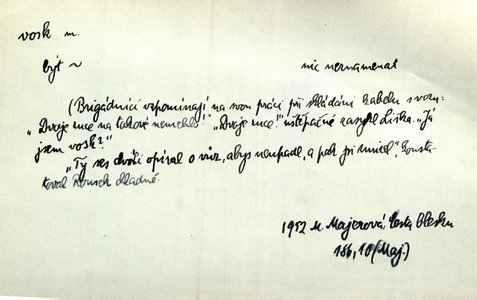 vosk m.
být ~ nic neznamenat
(Brigádníci vzpomínají na svou práci při skládání kabelu s vozu:
„Dvoje ruce na takové nemehlo!" „Dvoje ruce!" uštěpačně zasykl Liška. „Já
jsem vosk?"
„Ty ses dvěří opíral o vůz, abys neupadl, a pak jsi mizel," konsta-
toval Rousek chladně.
1952 M. Majerová, Cesta blesku
186, 10 (Maj.)